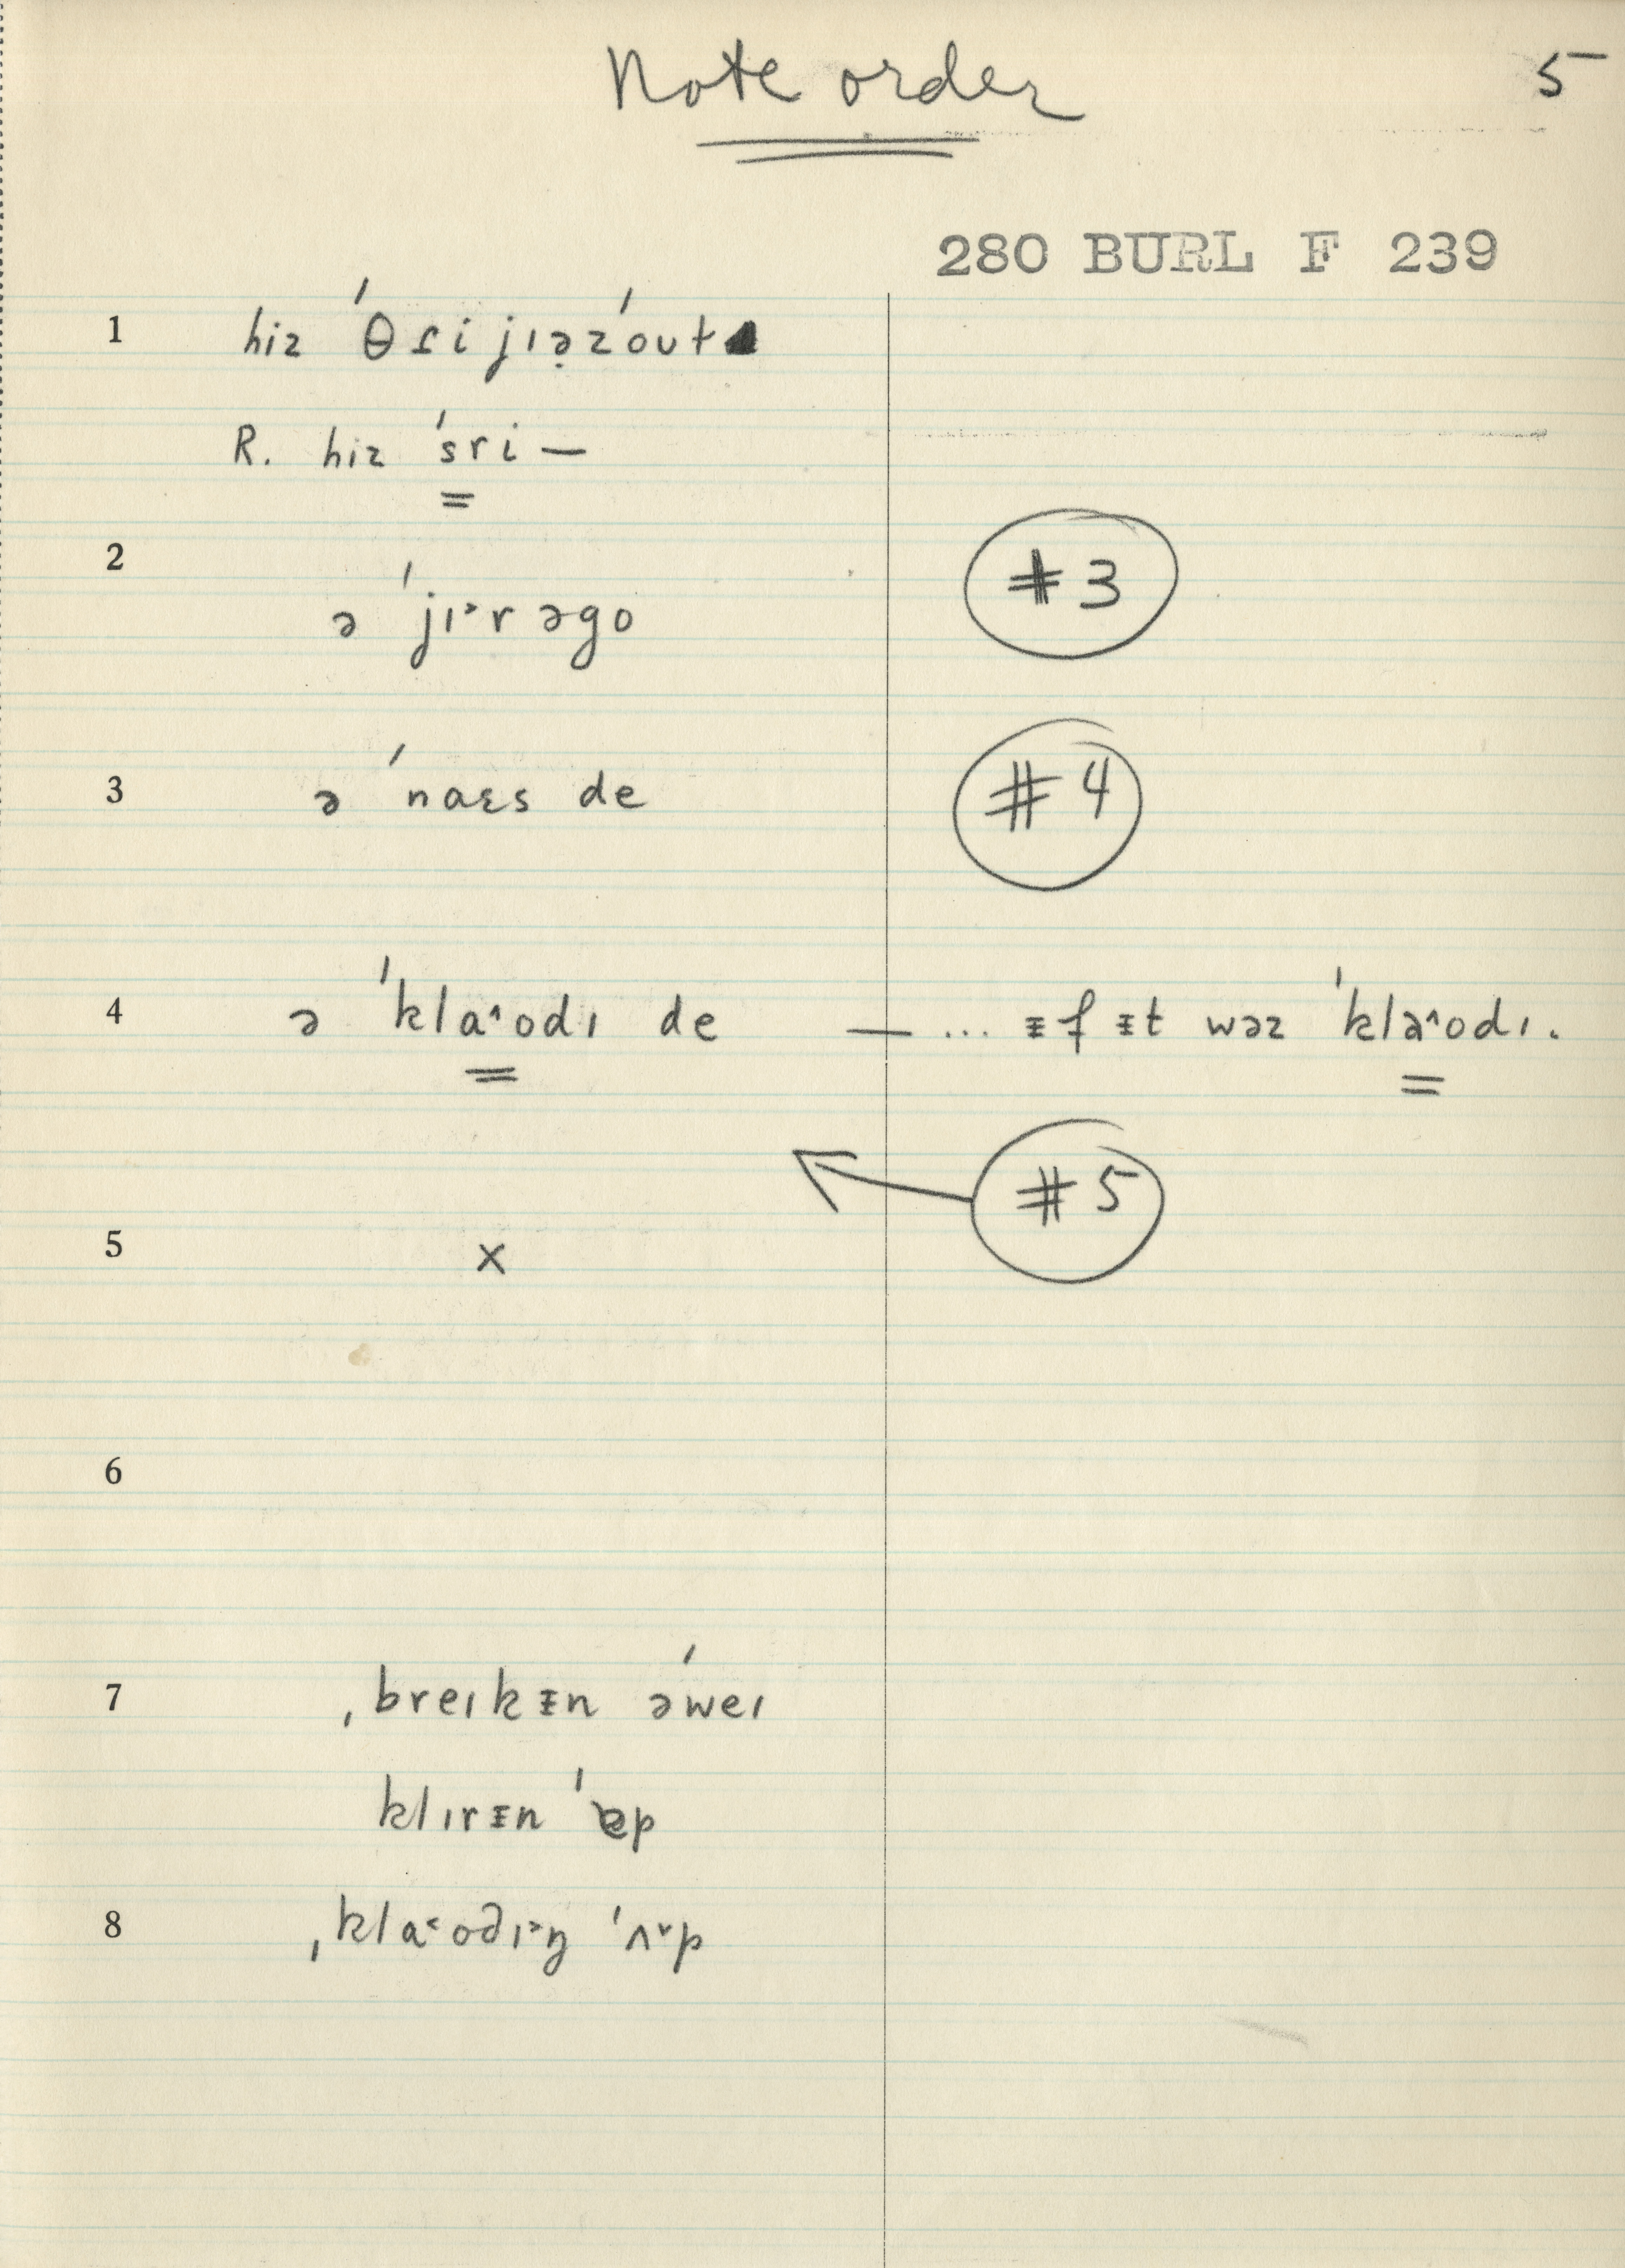 Note order 5
280 BURL F 239
1 hiz ˈθɾi jɪə̣zˈoʊt
R. hiz ˈsri —
2 ə ˈjɪ˃r əgo #3
3 ə ˈnaɛs de #4
4 ə ˈkla˄odɪ de — ... ᵻf ᵻt wəz ˈkla˄odɪ.
#5
5 x
6
7 ˌbreɪkᵻn əˈweɪ
klɪrᵻn ˈɐp
8 ˌkla˂od̯ɪ˃ŋ ˈʌ˅p